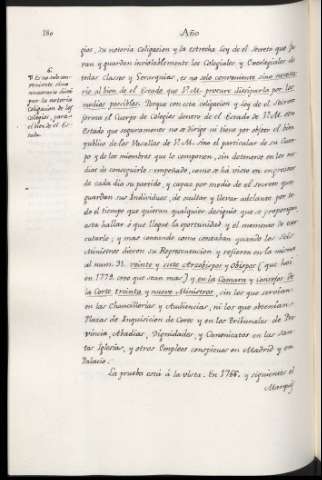 180
Año
6.
Es no solo con-
veniente sino
necesario disi-
par la notoria
Coligacion de los
Colegios, para
el bien de el Es-
tado.
gios. Su notoria Coligacion y la estrecha Ley de el secreto que ju-
ran y guardan inviolablemente los Colegiales y Concolegiales de
todas Clases y Gerarquias, es no solo conveniente sino necesa-
rio al bien de el Estado, que V.M. procure disiparla por los
medios posibles. Porque con esta coligacion y ley de el secreto
forma el Cuerpo de Colegios dentro de el Estado de V.M. otro
Estado que seguramente no se dirige ni tiene por objeto el bien
publico de los Vasallos de V.M. sino el particular de su Cuer-
po y de los miembros que le componen, sin detenerse en los me-
dios de conseguirlo: empeñado, como se há visto en
de cada dia su partido, y capaz por medio de el secreto que
guardan sus Individuos, de ocultar y llevar adelante por to-
do el tiempo que quieran qualquier designio que se propongan,
esta hallar ó que llegue la oportunidad y el momento de exe-
cutarlo; y mas contando como contaban quando los Seis
Ministros dieron su Representacion y refieren en la misma
al num. 31. veinte y siete Arzobispos y Obispos (que hoi
en 1772 creo que sean mas) y en la Camara y Consejos de
la Corte treinta y nueve Ministros, sin los que servian
en las Chancillerias y Audiencias, ni los que obtenian
Plazas de Inquisicion de Corte y en los Tribunales de Pro-
vincia, Abadias, Dignidades, y Canonicatos en las San-
tas Iglesias, y otros Empleos conspicuos en Madrid y en
Palacio.
La prueba está á la vista. En 1766. y siguientes el
Marqués